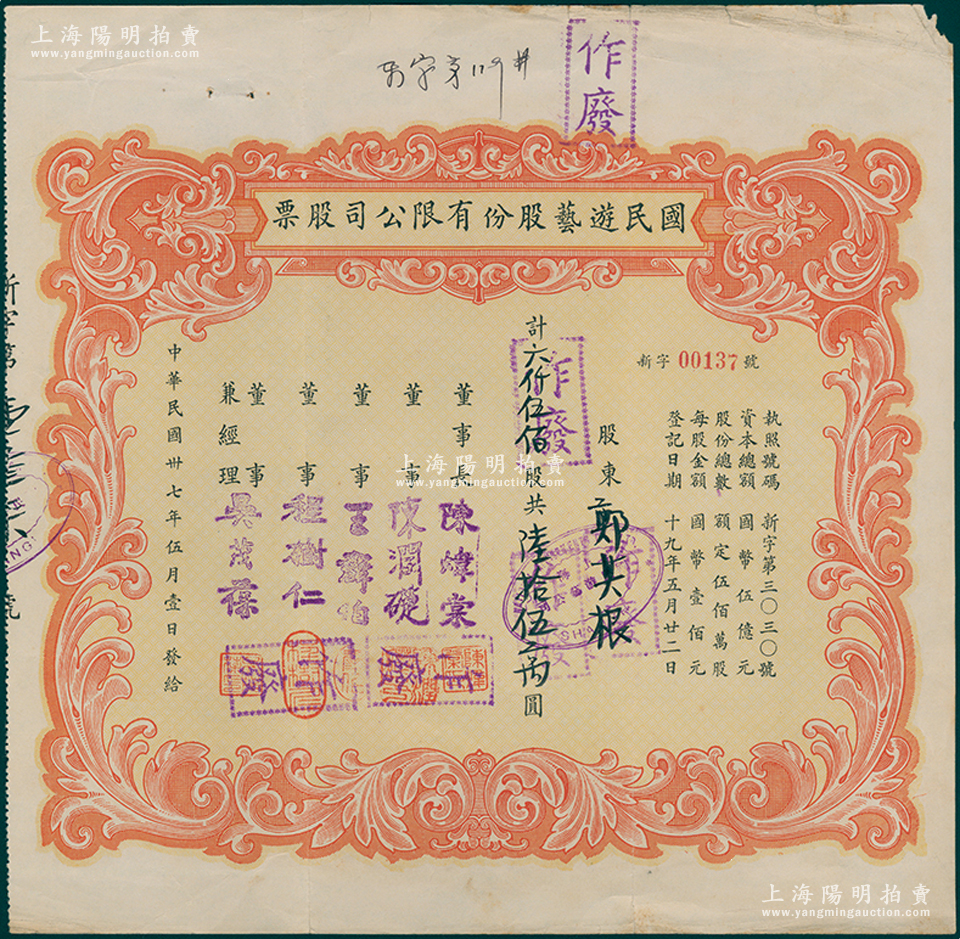 上海陽明拍賣
www.yangmingauction.com
作廢
國民遊藝股份有限公司股票
新字 00137 號
執照號碼 新字第三〇三〇號
資本總額 國幣伍億元
股份總數 額定伍佰萬股
每股金額 國幣壹佰元
登記日期 十九年五月廿二日
股東 鄭其根
計六仟伍佰股共陸拾伍萬圓
作廢
董事長 陳煒棠
董事 陳潤礎
董事
董事 程樹仁
董事兼經理 吳茂蓀
中華民國卅七年伍月壹日發給
作廢
作廢
上海陽明拍賣
www.yangmingauction.com
上海陽明拍賣
www.yangmingauction.com